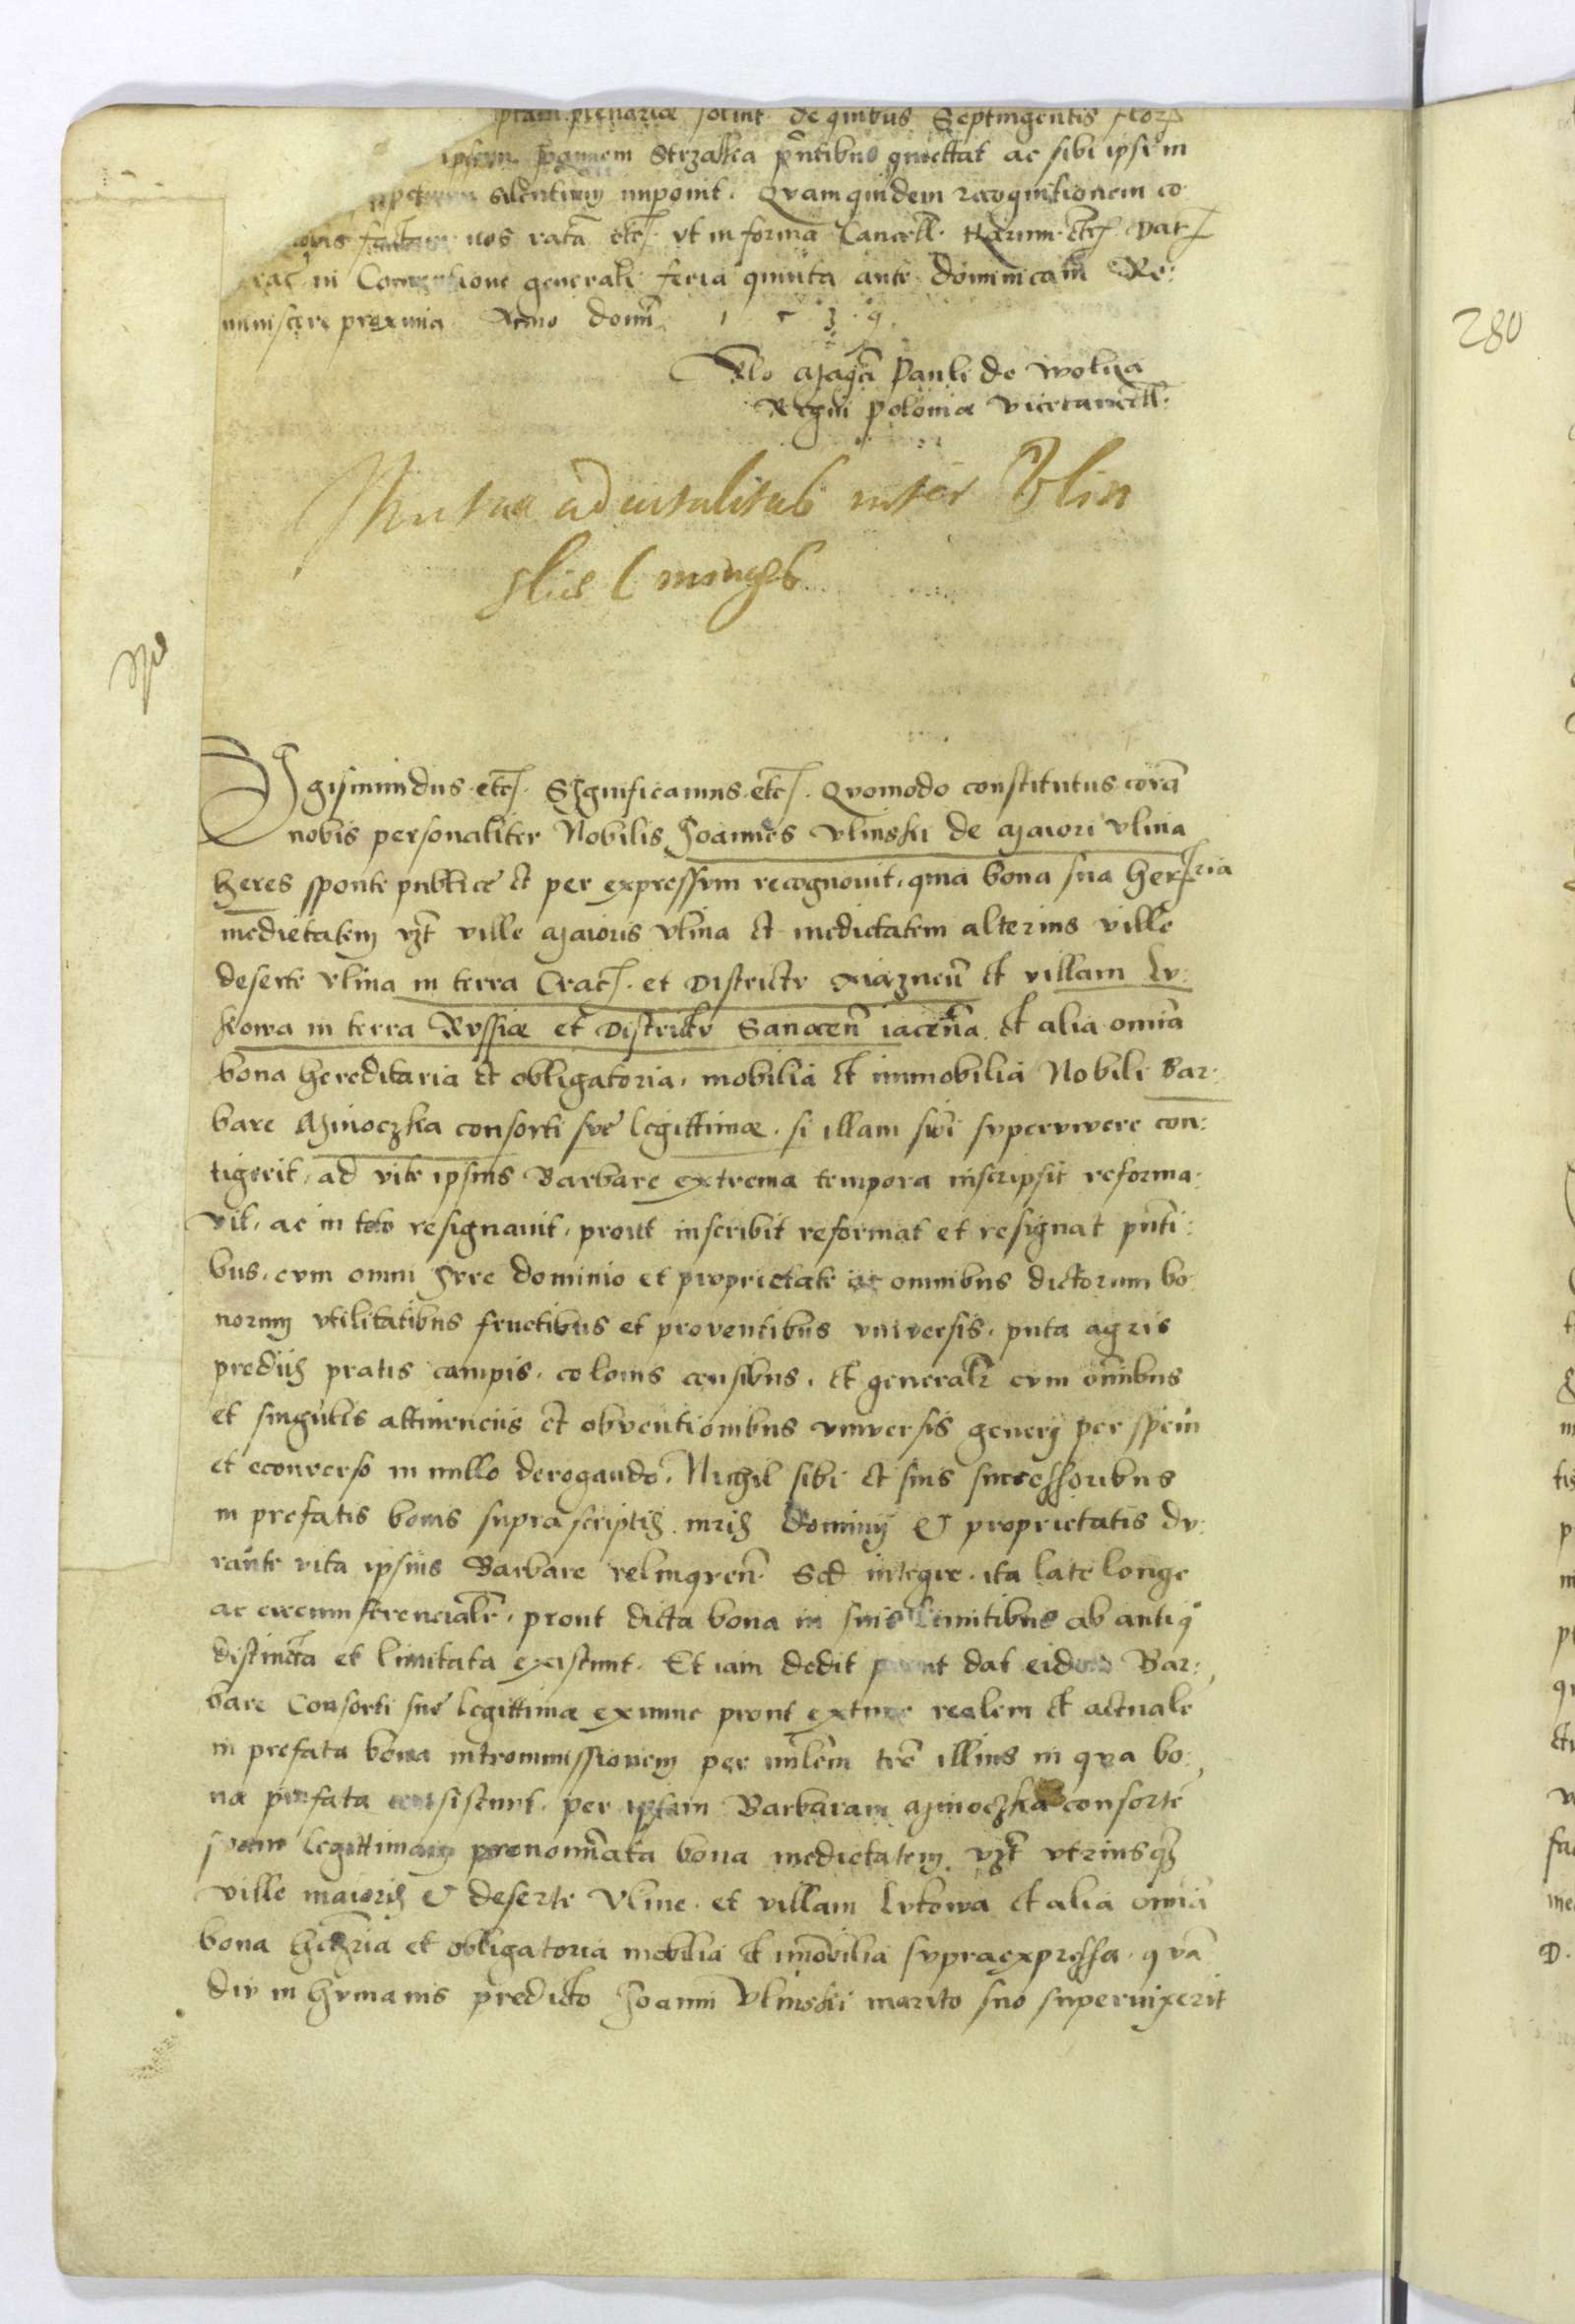 plenarie solint de quibus Septingentis flor
ipsum Joannem Strzalka pntibus quiettat ac sibi ipsi in
silentium imponit. Quamquidem recognitionem co
nos ratā etc. vt in forma Cancell. Harum etc. Dat
in Conventione generali feria quinta ante dominicam Re:
miniscere proxima Anno domī 1 5 3 9
Rlo Magcī Pauli de Wolija
Regni Polonie Vicecancell.
Mutua aduitalitas inter Vlin
skie Coniuges
280
Sigismundus etc. Significamus etc. Quomodo constitutus corā
nobis personaliter Nobilis Joannes Vlinskii de Maiori Vlina
heres sponte publice et per expressum recognouit, quia bona sua herria
medietatem vzt ville Maioris Vlina et medietatem alterius ville
deserte Vlina in terra Crac. et Districtv Xiaznen̄ et villam Lv:
kowa in terra Rvssiæ et Districtv Sanocen̄ iacen̄a et alia omīa
bona hereditaria et obligatoria, mobilia et immobilia Nobili Bar:
bare Minoczka consorti sve legittimæ. si illam svi svpervivere con:
tigerit, ad vite ipsius Barbare extrema tempora inscripsit reforma:
vit, ac in toto resignauit, prout inscribit reformat et resignat pn̄ti:
bus, cvm omni Jvre dominio et proprietate ac omnibus dictorum bo:
norum vtilitatibus fructibus et proventibus vniversis, puta agris
prediis pratis campis, colonis censibus, et generalr cvm om̄ibus
et singulis attinenciis et obventionibus vniversis generi per spēm
et econverso in nullo derogando. Nichil sibi et suis successoribus
in prefatis bonis suprascriptis iuris dominij et proprietatis dv:
rante vita ipsius Barbare relinqven̄. Sed integre, ita late longe
ac circumferencialr, prout dicta bona in suis limitibus ab antiqo
distincta et limitata existunt. Et iam dedit prout dat eidem Bar:
bare Consorti sue legittimæ exnunc prout extunc realem et actualē
in prefata bona intromissionem per mlem tre illius in qva bo:
na prefata consistunt, per ipsam Barbaram Minoczka consortē
svam legittimam prenomīata bona medietatem vzt vtriusqz
ville maioris et deserte Vline, et villam Lvkowa et alia omīa
bona herria et obligatoria mobilia et im̄obilia svpraexpressa, qvā
div in hvmanis predicto Joanni Vlinski marito suo supervixerit